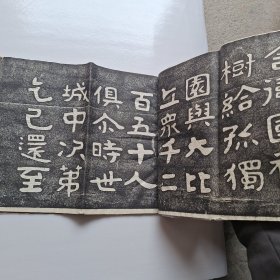 衛國
樹給孤獨
園與大比
丘眾千二
百五十人
俱尒時世
城中次第
乞已還至